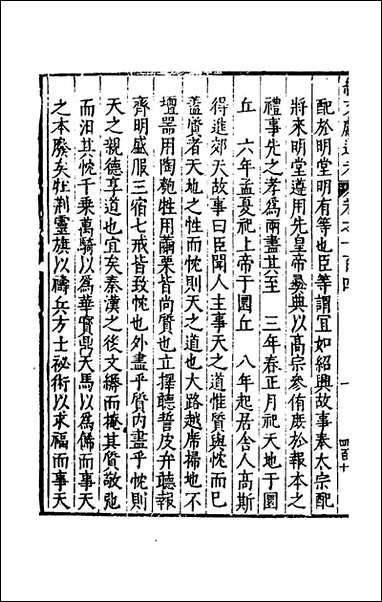 文獻通考 卷之一百四 一 四百十
配於明堂明有等也臣等謂宜如紹興故事奉太宗配
將來明堂遵用先皇帝彝典以高宗參侑庶於報本之
禮事先之孝爲兩盡其至 三年春正月祀天地于圜
丘 六年孟夏祀上帝于圜丘 八年起居舍人高斯
得進郊天故事曰臣聞人主事天之道惟質與忱而已
蓋質者天地之性而忱則天之道也大路越席掃地不
壇器用陶匏牲用繭栗皆尚質也立擇聽誓皮弁聽報
齊明盛服三宿七戒皆致忱也外盡乎質内盡乎忱則
天之親德享道也宜矣秦漢之後文縟而掩其質敬弛
而汩其忱千乘萬騎以爲華寶鼎天馬以爲備而事天
之本廢矣牡荆靈旗以禱兵方士祕術以求福而事天